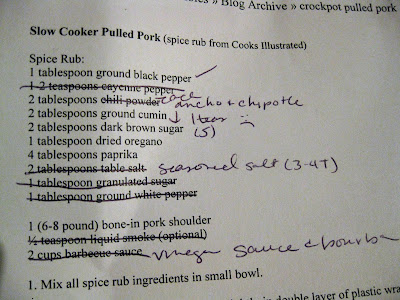 » Blog Archive » crockpot pulled pork
Slow Cooker Pulled Pork (spice rub from Cooks Illustrated)
Spice Rub:
1 tablespoon ground black pepper ✓
1-2 teaspoons cayenne pepper
2 tablespoons chili powder ancho + chipotle
2 tablespoons ground cumin ↓ 1 teas
2 tablespoons dark brown sugar (5)
1 tablespoon dried oregano
4 tablespoons paprika
2 tablespoons table salt seasoned salt (3-4T)
1 tablespoon granulated sugar
1 tablespoon ground white pepper
1 (6-8 pound) bone-in pork shoulder
½ teaspoon liquid smoke (optional)
2 cups barbecue sauce vinegar sauce + bourbon
1. Mix all spice rub ingredients in small bowl.
in double layer of plastic